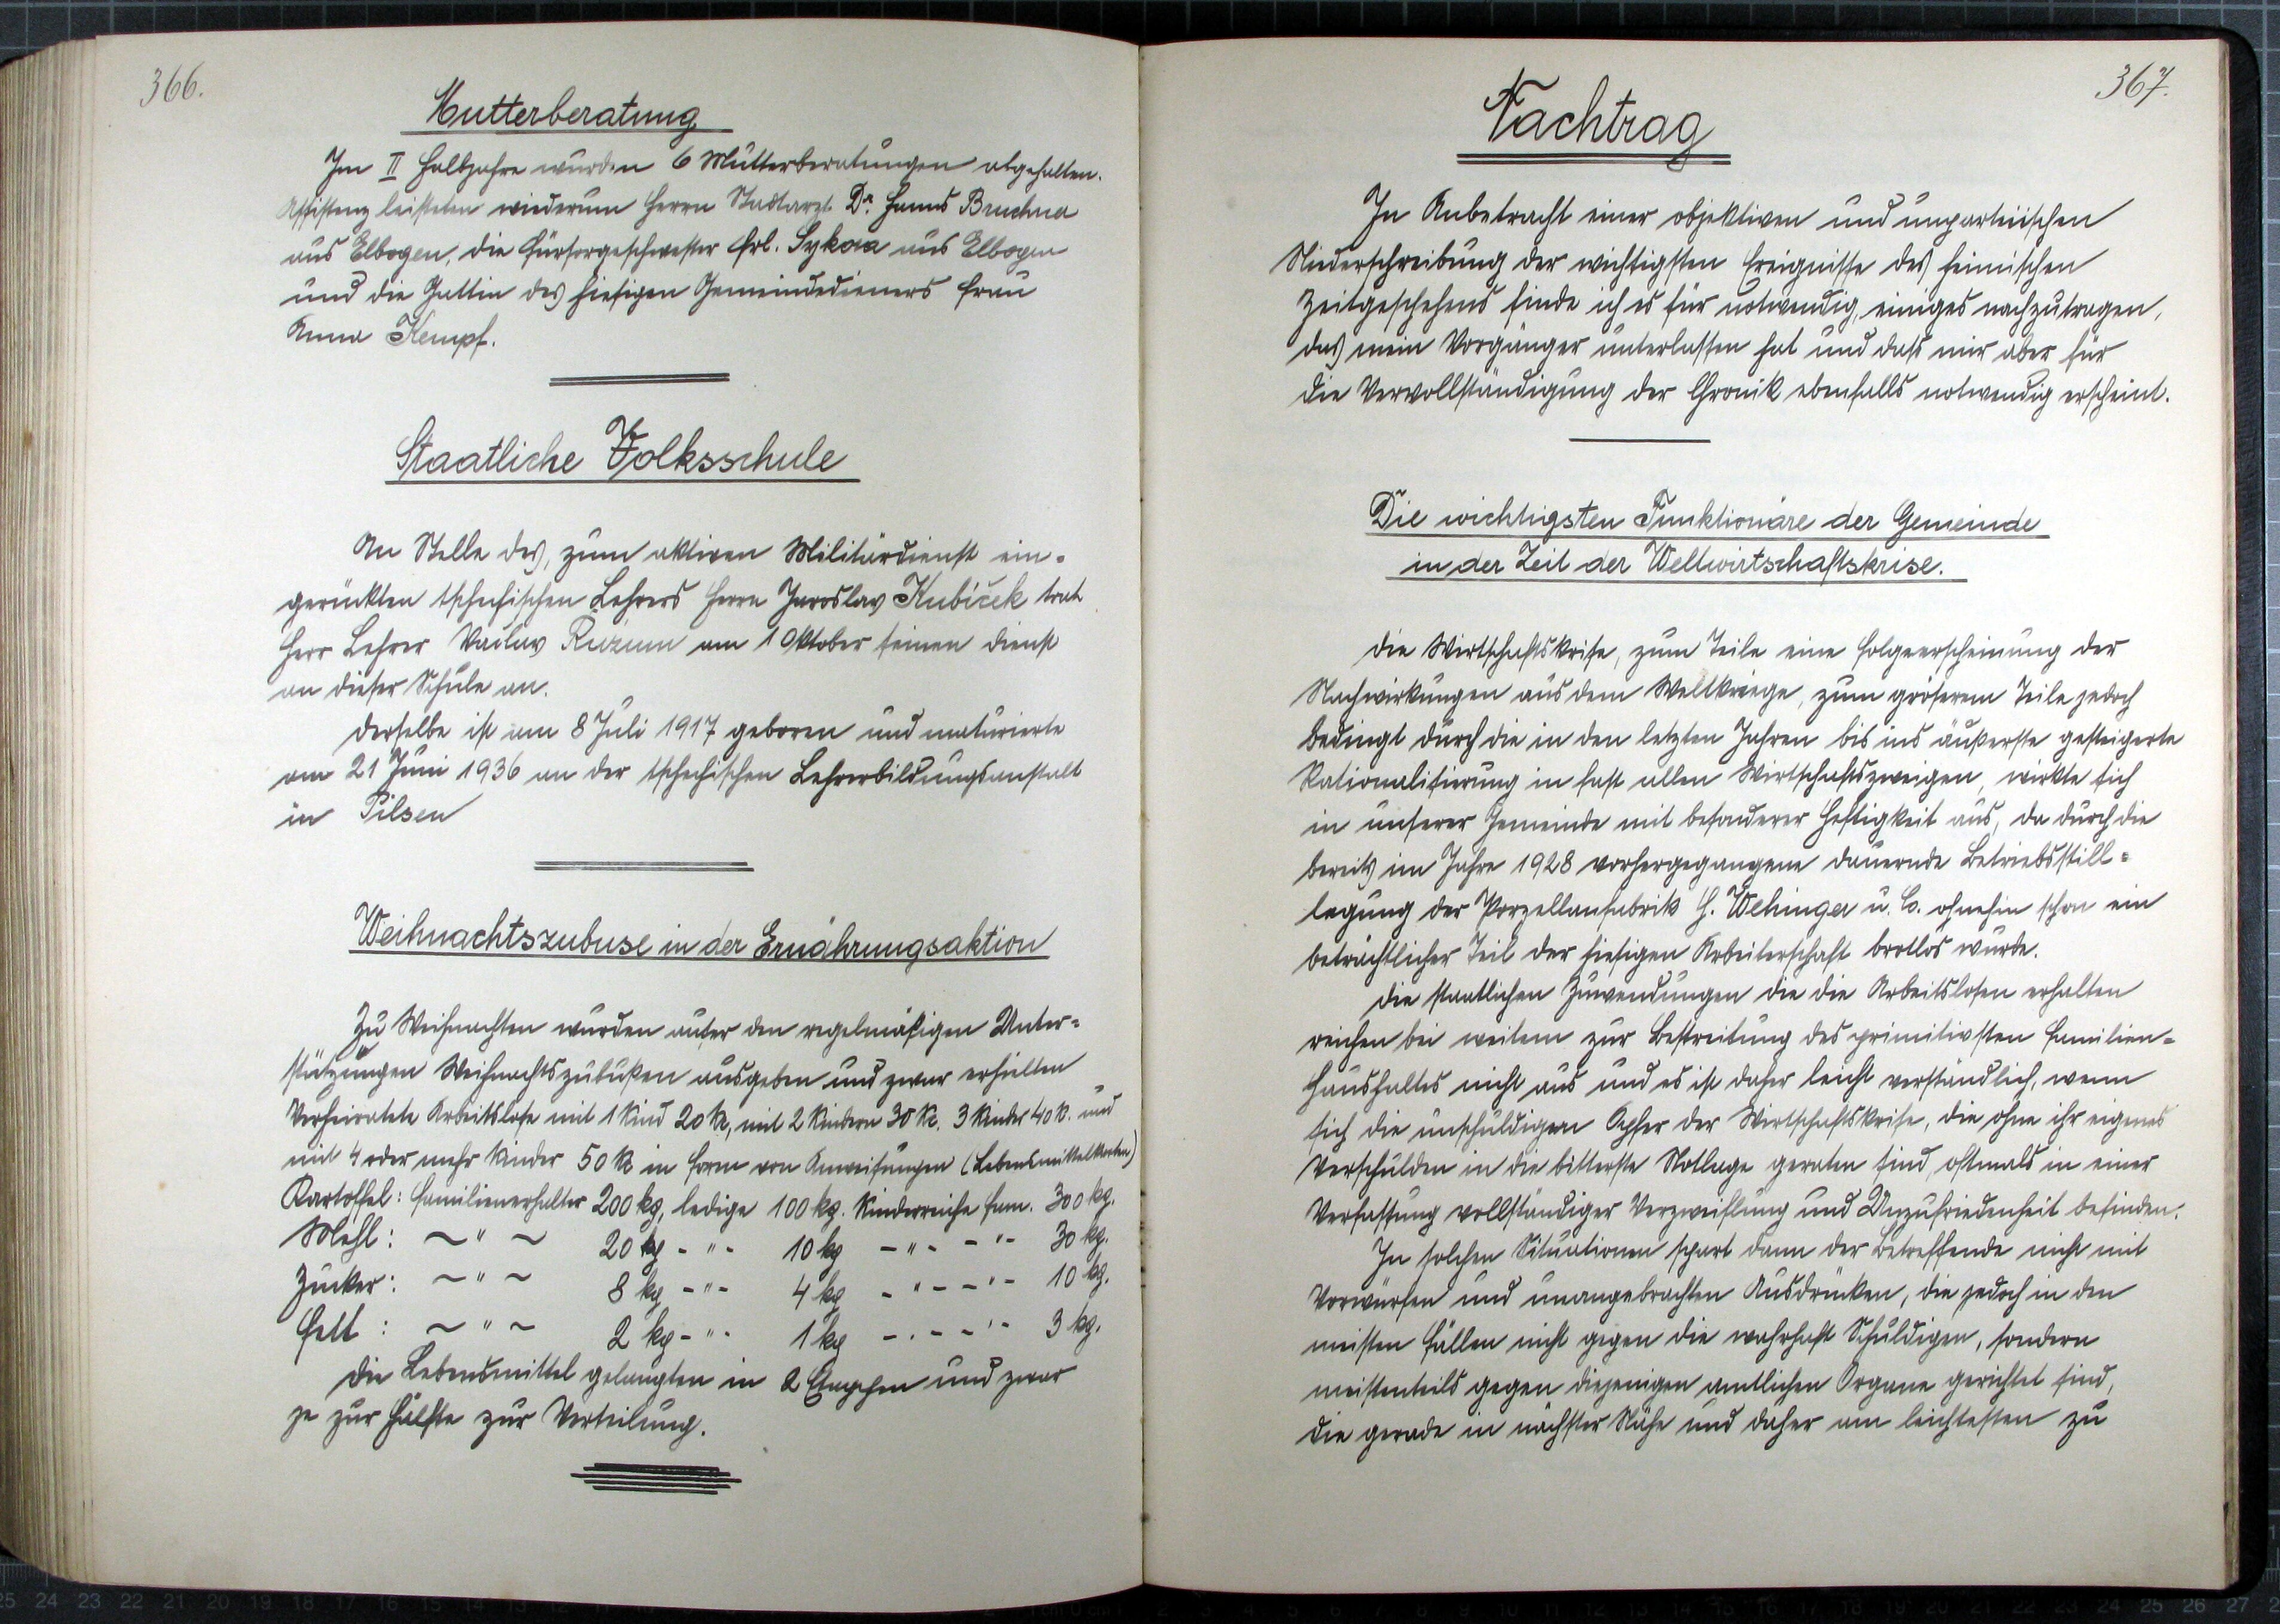 366.
Mutterberatung
Im II Halbjahre wurden 6 Mütterberatungen abgehalten.
Assistenz leisteten wiederum Herrn Stadtarzt Dr. Hanns Bruchna
aus Elbogen, die Fürsorgeschwester Frl. Sykora aus Elbogen
und die Gattin des hiesigen Gemeindedieners Frau
Anna Kempf.
Staatliche Volksschule
An Stelle des, zum aktiven Militärdienst ein-
gerückten tschechischen Lehrers Herrn Jaroslav Kubiček trat
Herr Lehrer Vaclav am 1 Oktober seinen Dienst
an dieser Schule an.
Derselbe ist am 8 Juli 1917 geboren und maturierte
am 21 Juni 1936 an der tschechischen Lehrerbildungsanstalt
in Pilsen
Weihnachtszubuse in der Ernährungsaktion
Zu Weihnachten wurden außer den regelmäßigen Unter-
stützungen Weihnachtszubußen ausgeben und zwar erhielten
Verheiratete Arbeitslose mit 1 Kind 20 Kč, mit 2 Kindern 30 Kč. 3 Kinder 40 K. und
mit 4 oder mehr Kinder 50 Kč in Form von Anweisungen (Lebensmittelkarten)
Kartoffel: Familienerhalter 200 kg, ledige 100 kg. Kinderreiche Fam. 300 kg.
Mehl: ~ " ~ 20 kg - " - 10 kg - " - - " - 30 kg.
Zucker: ~ " ~ 8 kg - " - 4 kg - " - - " - 10 kg.
Fett: ~ " ~ 2 kg - " - 1 kg - " - - " - 3 kg.
Die Lebensmittel gelangten in 2 Etappen und zwar
je zur Hälfte zur Verteilung.
367.
Nachtrag
In Anbetracht einer objektiven und unparteiischen
Niederschreibung der wichtigsten Ereignisse des heimischen
Zeitgeschehens finde ich es für notwendig, einiges nachzutragen,
das mein Vorgänger unterlassen hat und dass mir aber für
die Vervollständigung der Chronik ebenfalls notwendig erscheint.
Die wichtigsten Funktionäre der Gemeinde
in der Zeit der Weltwirtschaftskrise.
Die Wirtschaftskrise, zum Teile eine Folgeerscheinung der
Nachwirkungen aus dem Weltkriege, zum größerem Teile jedoch
bedingt durch die in den letzten Jahren bis ins äußerste gesteigerte
Rationalisierung in fast allen Wirtschaftszweigen, wirkte sich
in unserer Gemeinde mit besonderer Heftigkeit aus, da durch die
bereits im Jahre 1928 vorhergegangene dauernde Betriebsstill-
legung der Porzellanfabrik H. Wehinger u. Co. ohnehin schon ein
beträchtlicher Teil der hiesigen Arbeiterschaft brotlos wurde.
Die staatlichen Zuwendungen die die Arbeitslosen erhalten
reichen bei weitem zur Bestreitung des primitivsten Familien-
haushaltes nicht aus und es ist daher leicht verständlich, wenn
sich die unschuldigen Opfer der Wirtschaftskrise, die ohne ihr eigenes
Verschulden in die bitterste Notlage geraten sind, oftmals in einer
Verfassung vollständiger Verzweiflung und Unzufriedenheit befinden.
In solchen Situationen spart dann der Betreffende nicht mit
Vorwürfen und unangebrachten Ausdrücken, die jedoch in den
meisten Fällen nicht gegen die wahrhaft Schuldigen, sondern
meistenteils gegen diejenigen amtlichen Organe gerichtet sind,
die gerade in nächster Nähe und daher am leichtesten zu